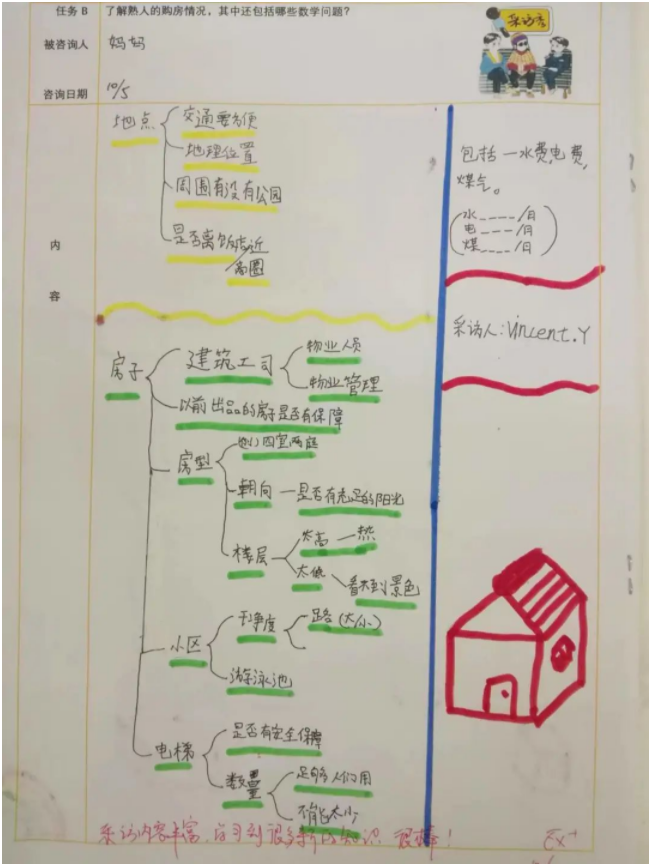 任务 B 了解熟人的购房情况，其中还包括哪些数学问题？
采访秀
被咨询人 妈妈
咨询日期 10/5
内容
地点
交通要方便
地理位置
周围有没有公园
是否离饭店近
/商圈
包括一水费,电费,
煤气。
水----/月
电----/月
煤----/月
采访人:Vincent.Y
房子
建筑工司
物业人员
物业管理
以前出品的房子是否有保障
房型
四室两庭
朝向 — 是否有充足的阳光
楼层
太高 — 热
太低
看不到景色
小区
干净度
路 (大小)
游泳池
电梯
是否有安全保障
数量
足够人们用
不能太少
采访内容丰富,学习到很多新的知识 很棒!
Ex+